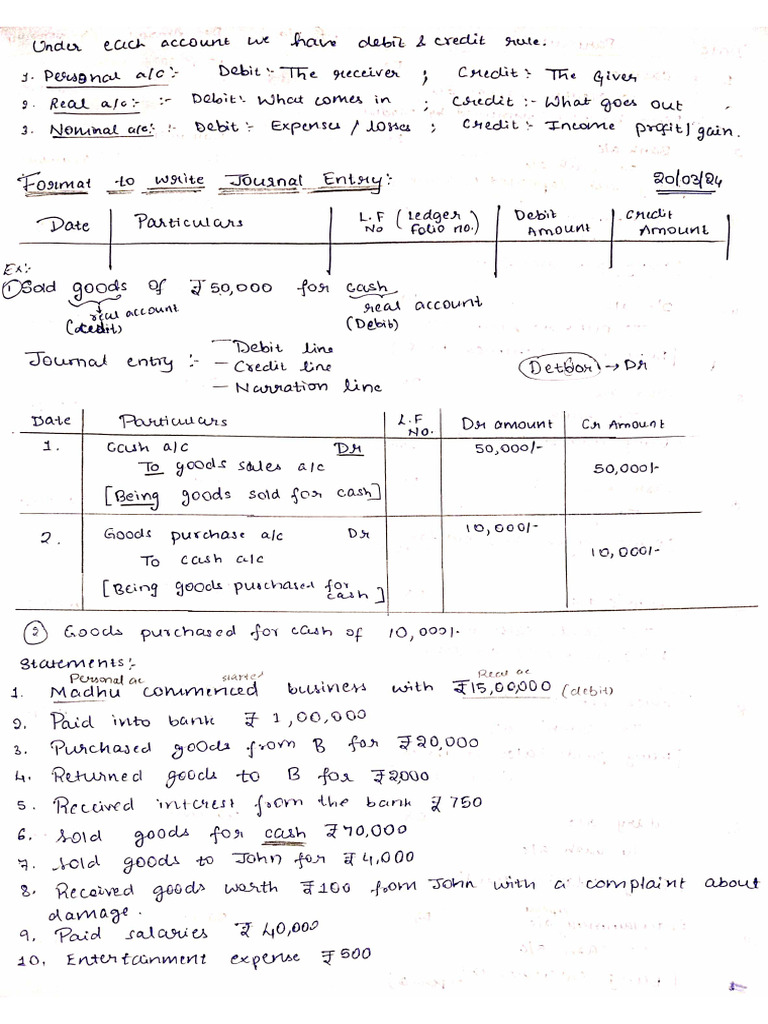 Under each account we have debit & credit rule.
1. Personal a/c:- Debit:- The receiver ; Credit:- The Giver
2. Real a/c:- :- Debit:- What comes in ; Credit:- What goes out
3. Nominal a/c:- :- Debit:- Expenses / losses ; Credit:- Income profit/gain.
Format to write Journal Entry:- 20/03/24
Date Particulars L.F No (Ledger folio no.) Debit Amount Credit Amount
Ex:-
① Sold goods of ₹ 50,000 for cash
real account real account
(Credit) (Debit)
Journal entry :- — Debit line
— Credit line Detbor → Dr
— Narration line
Date Particulars L.F No. Dr amount Cr Amount
1. Cash a/c Dr 50,000/-
To goods sales a/c 50,000/-
[Being goods sold for cash]
2. Goods purchase a/c Dr 10,000/-
To cash a/c 10,000/-
[Being goods purchased for cash]
② Goods purchased for cash of 10,000/-
Statements:-
Personal ac started Real ac
1. Madhu commenced business with ₹15,00,000 (debit)
2. Paid into bank ₹ 1,00,000
3. Purchased goods from B for ₹20,000
4. Returned goods to B for ₹2000
5. Received interest from the bank ₹ 750
6. Sold goods for cash ₹70,000
7. Sold goods to John for ₹4,000
8. Received goods worth ₹100 from John with a complaint about
damage.
9. Paid salaries ₹ 40,000
10. Entertainment expense ₹500